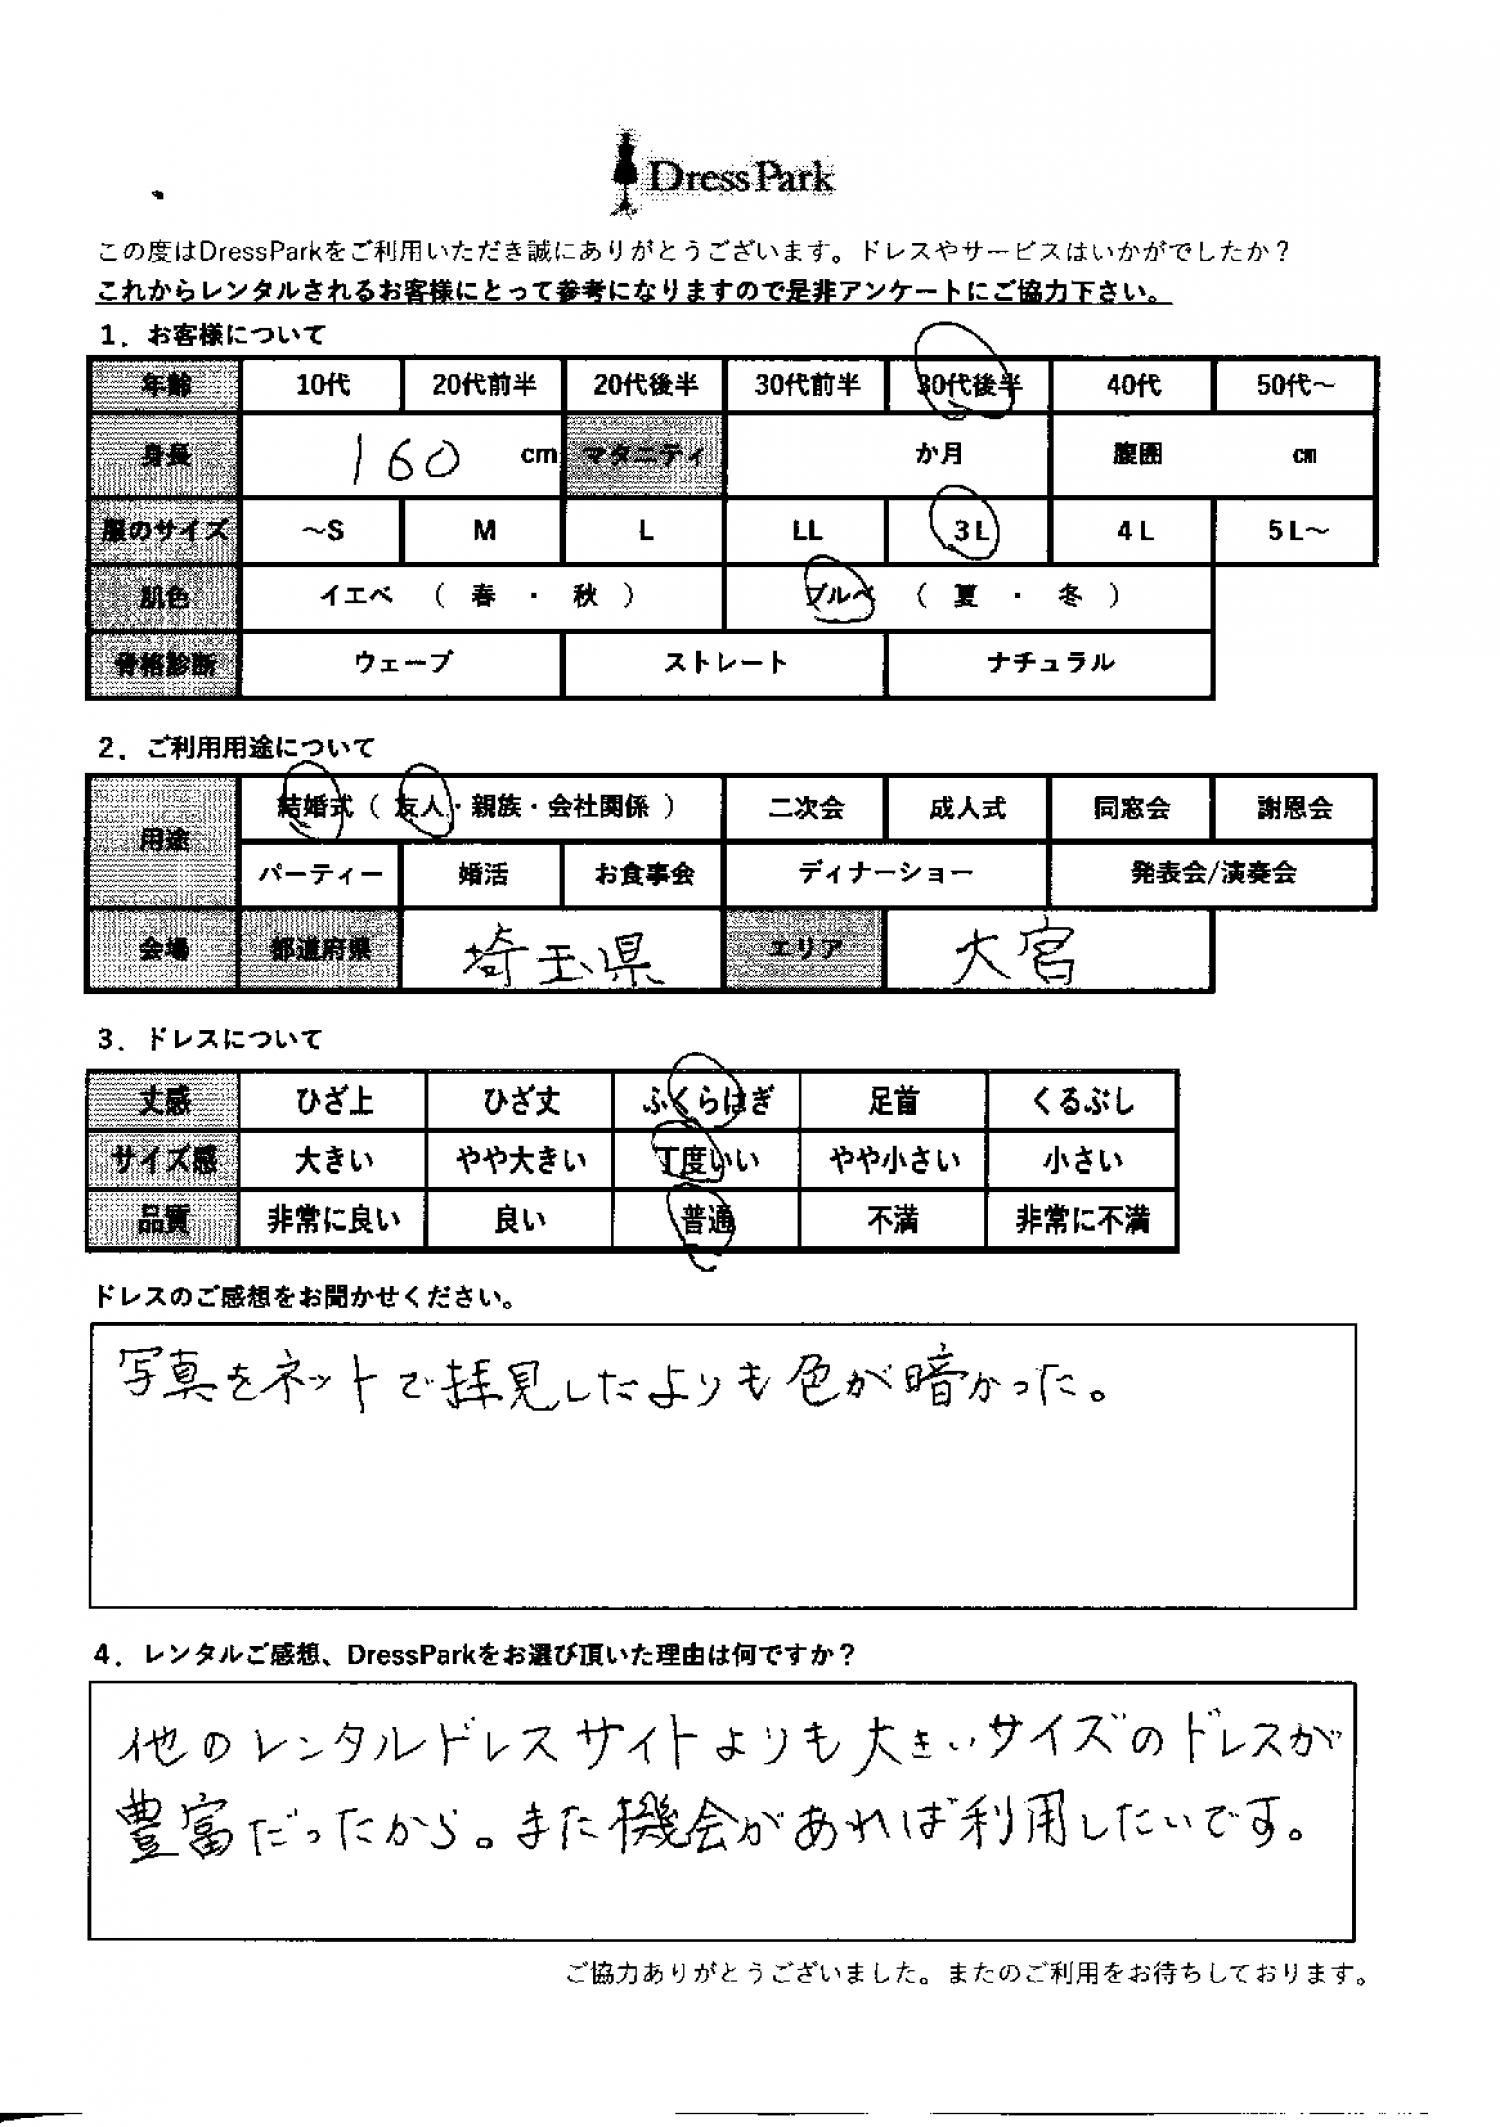 DressPark
この度はDressParkをご利用いただき誠にありがとうございます。ドレスやサービスはいかがでしたか？
これからレンタルされるお客様にとって参考になりますので是非アンケートにご協力下さい。
1．お客様について
年齢 10代 20代前半 20代後半 30代前半 30代後半 40代 50代～
身長 160 cm マタニティ か月 腹囲 cm
服のサイズ ～S M L LL 3L 4L 5L～
肌色 イエベ （ 春 ・ 秋 ） ブルベ （ 夏 ・ 冬 ）
骨格診断 ウェーブ ストレート ナチュラル
2．ご利用用途について
用途 結婚式（ 友人・親族・会社関係 ） 二次会 成人式 同窓会 謝恩会
パーティー 婚活 お食事会 ディナーショー 発表会/演奏会
会場 都道府県 埼玉県 エリア 大宮
3．ドレスについて
丈感 ひざ上 ひざ丈 ふくらはぎ 足首 くるぶし
サイズ感 大きい やや大きい 丁度いい やや小さい 小さい
品質 非常に良い 良い 普通 不満 非常に不満
ドレスのご感想をお聞かせください。
写真をネットで拝見したよりも色が暗かった。
4．レンタルご感想、DressParkをお選び頂いた理由は何ですか？
他のレンタルドレスサイトよりも大きいサイズのドレスが
豊富だったから。また機会があれば利用したいです。
ご協力ありがとうございました。またのご利用をお待ちしております。